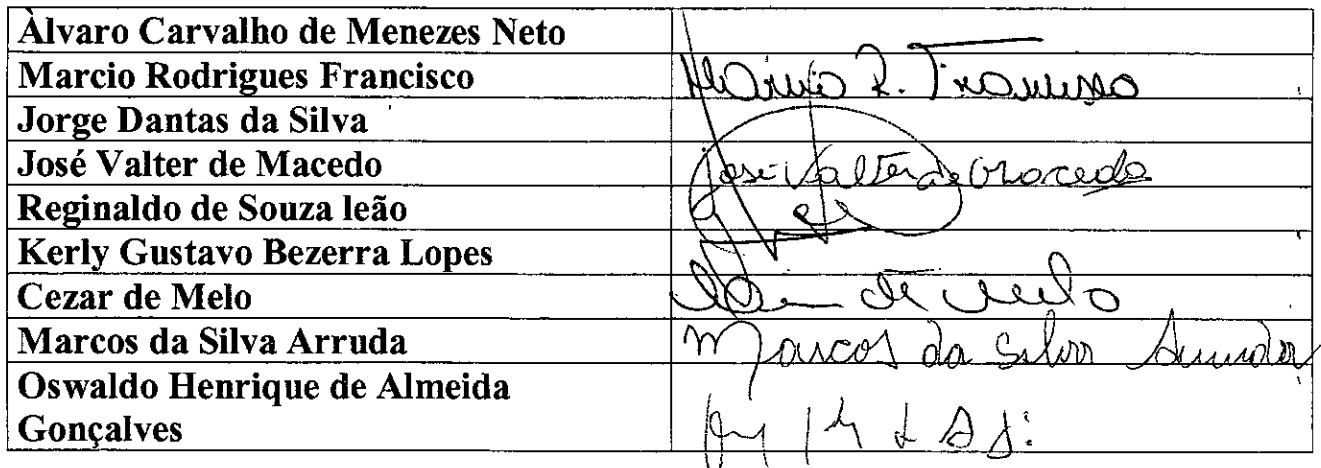 Àlvaro Carvalho de Menezes Neto
Marcio Rodrigues Francisco
Jorge Dantas da Silva
José Valter de Macedo José Valter de Macedo
Reginaldo de Souza leão
Kerly Gustavo Bezerra Lopes
Cezar de Melo de Melo
Marcos da Silva Arruda Marcos da Silva Arruda
Oswaldo Henrique de Almeida
Gonçalves